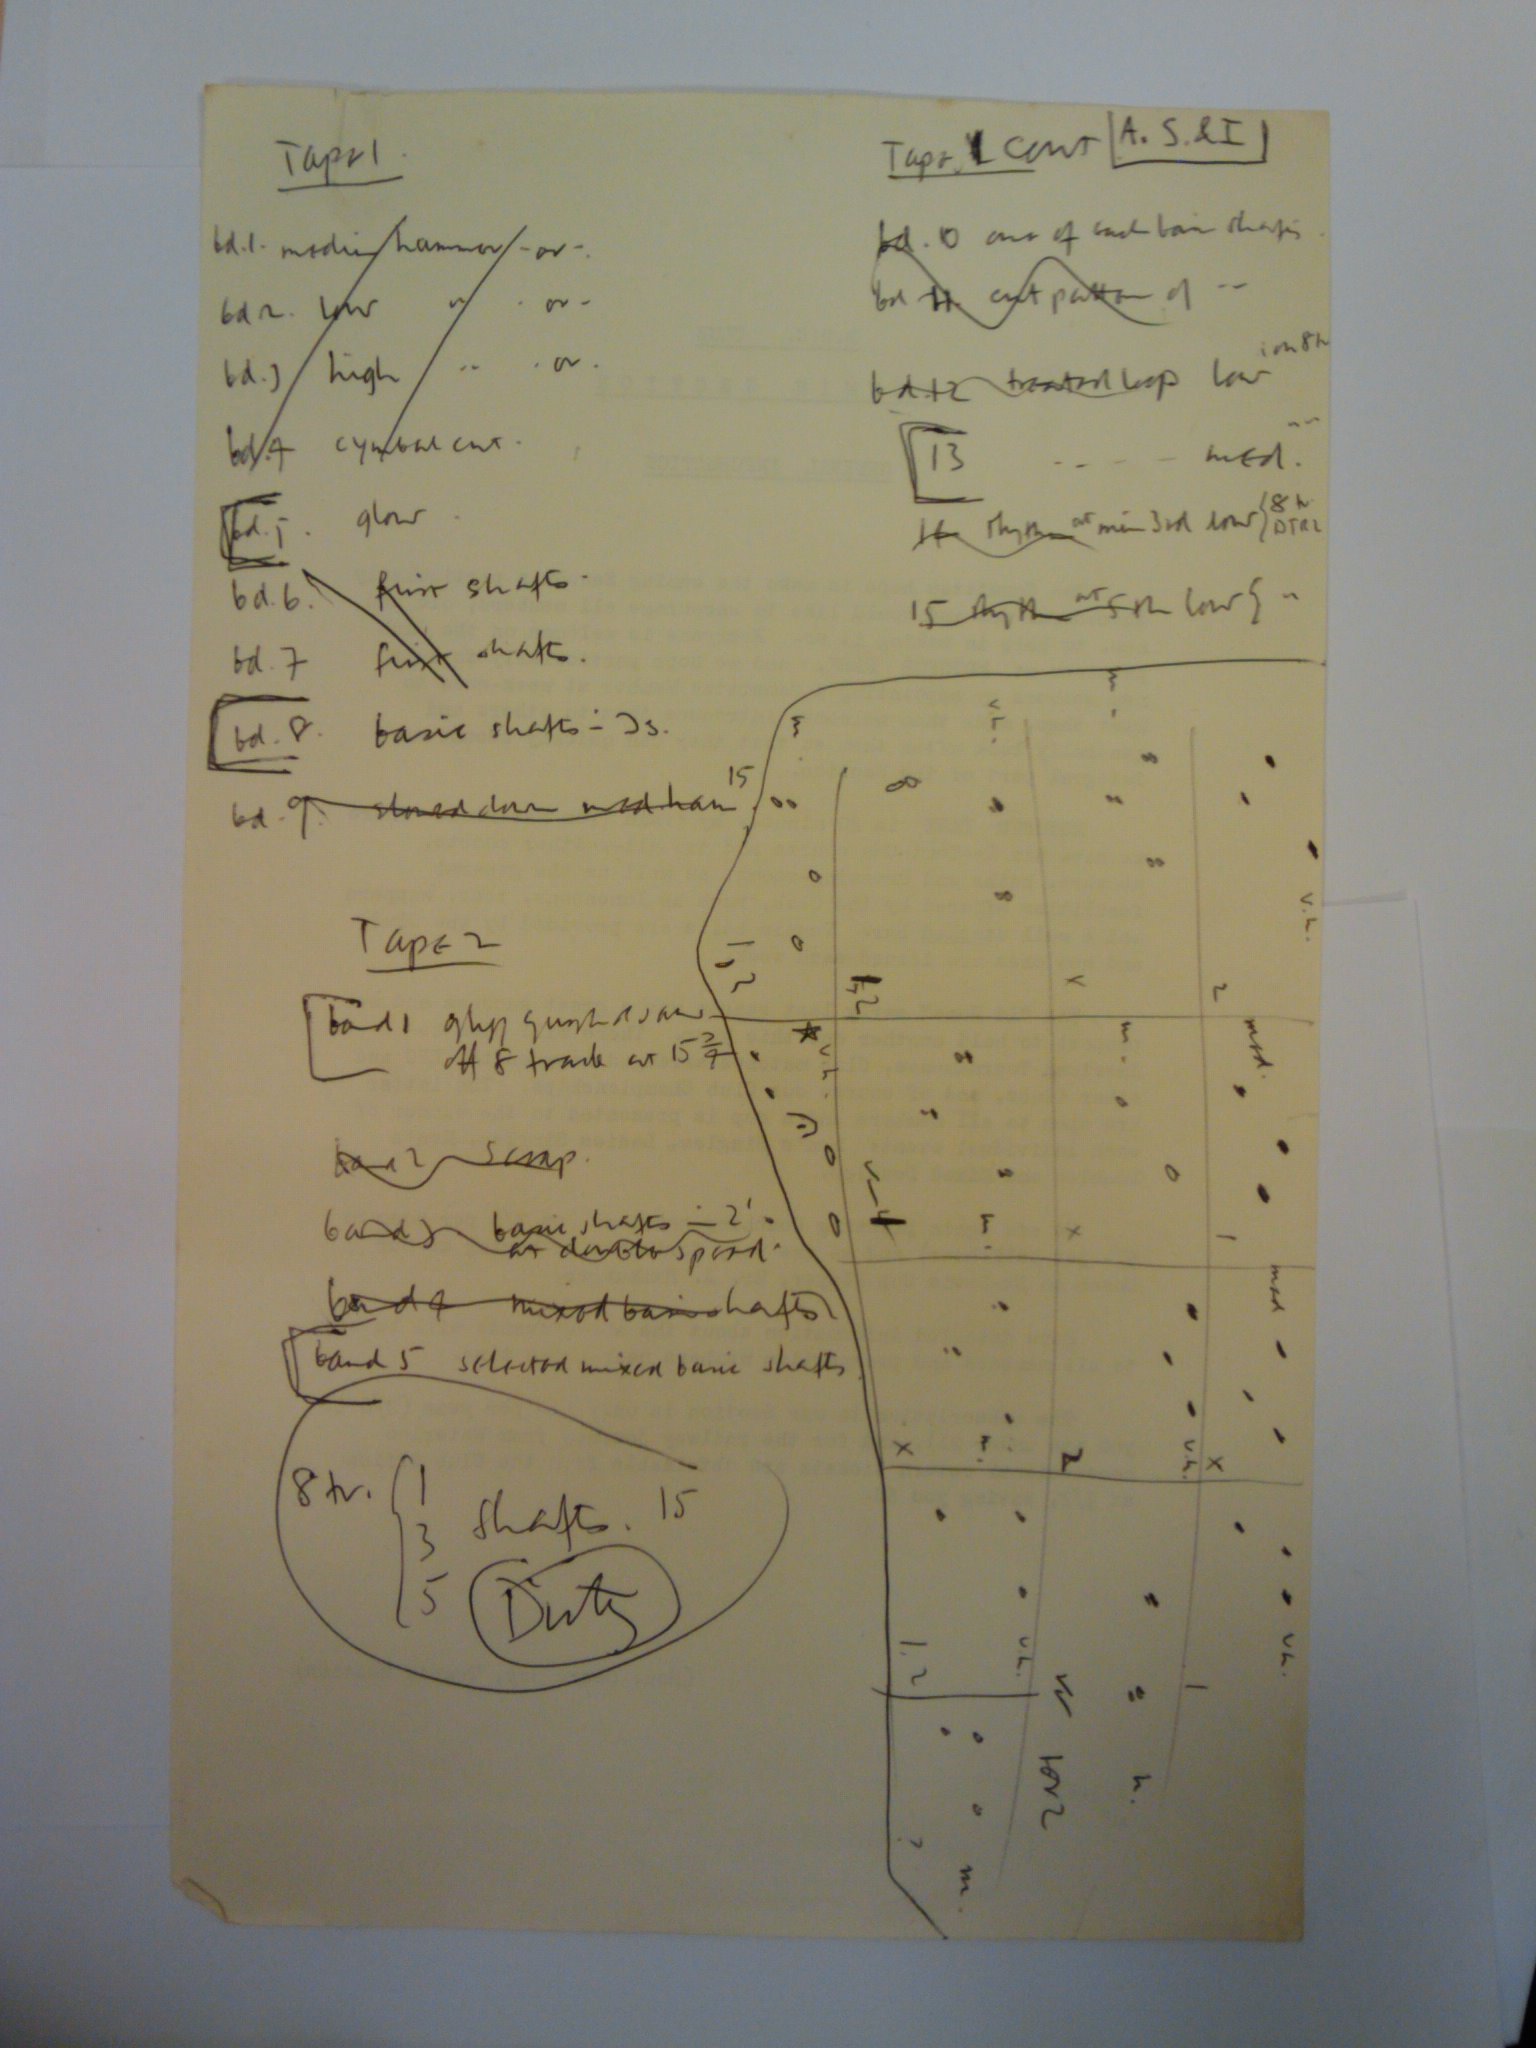 Tape 1
bd.1. medium hammer - or -.
bd 2. low " . or -
bd.3 high " . or .
bd.4 cymbal cut.
bd.5. glow.
bd.6. first shafts.
bd.7 first shafts.
bd.8. basic shafts - 3s.
bd.9. slowed down med ham 15
Tape 2
band 1
off 8 track at 15
band 2 scrap.
band 3 basic shafts - 2'
at double speed.
band 4 mixed basic shafts
band 5 selected mixed basic shafts
8 tr. 1 3 5 shafts. 15
Dirty
Tape 1 cont A. S. & I
bd. 10 one of each basic shafts
bd 11. cut pattern of "
bd. 12 treated loop low on 8tr
13 " " med. "
14 rhythm at min 3rd low } 8 tr
15 rhythm at 5th low } "
m
v.h.
m
v.h.
1,2
1,2
x
2
v.h.
m
med.
h
x
1
med
x
2
v.h.
x
1.2
v.h.
1
v.h.
1 or 2
h.
?
m.